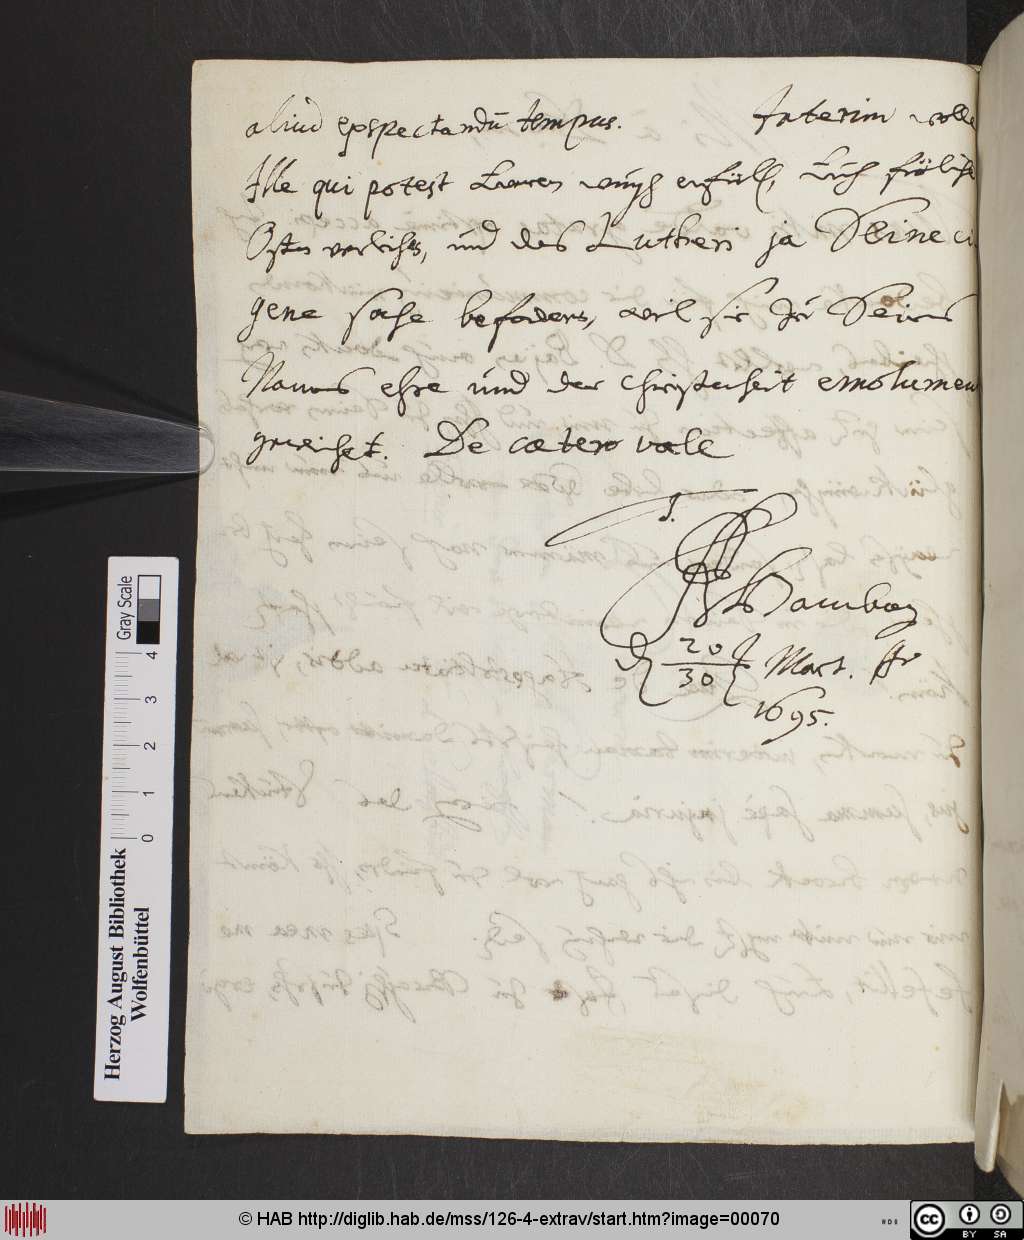 aliud exspectandū tempus. Interim wolle
Ille qui potest Eweren wunsch erfüll, Euch fröliche
Ostern verleihen, und des Lutheri ja Seine ei-
gene sache befodern, weil sie zu Seines
Namens ehre und der Christenheit emolument
gereichet. De cætero vale
T.
Hamburg
d 20/30 Mart. Aō
1695.
Gray Scale
0 1 2 3 4
Herzog August Bibliothek
Wolfenbüttel
© HAB http://diglib.hab.de/mss/126-4-extrav/start.htm?image=00070
cc BY SA